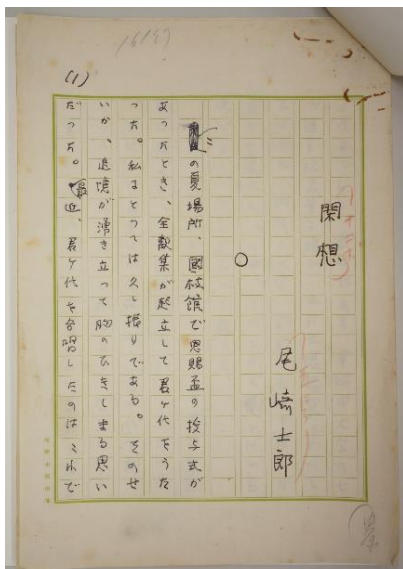 (1)
閑想
尾崎士郎
○
この夏場所、國技館で恩賜盃の授与式が
あったとき、全観集が起立して君ヶ代をうた
った。私にとっては久し振りである。そのせ
いか、追憶が湧き立って胸のひきしまる思い
だった。最近、君ヶ代を合唱したのはこれで